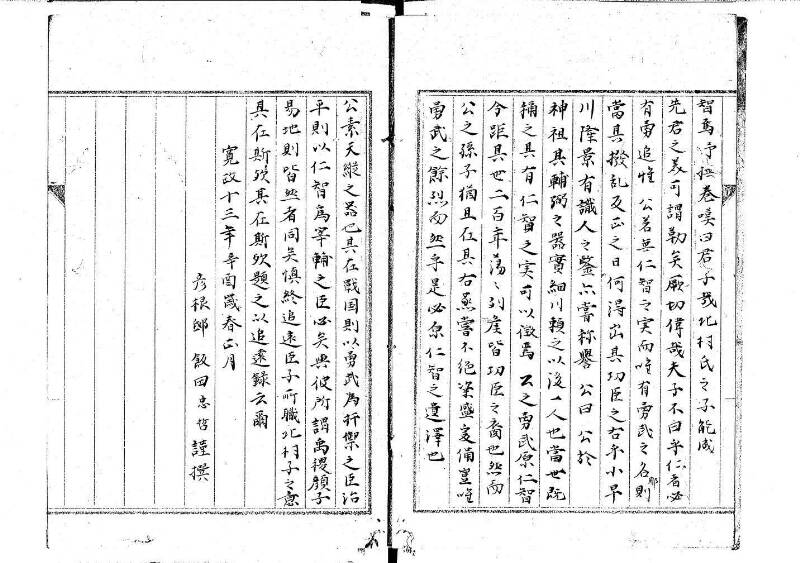 智焉予掩卷嘆曰君子哉北村氏之子能成
先君之美可謂勤矣厥功偉哉夫子不曰乎仁者必
有勇追惟 公若無仁智之實而唯有勇武之名則
當其撥乱反正之日何得出其功臣之右乎小早
川隆景有識人之鑒亦嘗称譽 公曰 公於
神祖其輔弼之器實細川頼之以後一人也當世既
稱之具有仁智之実可以徵焉 公之勇武原仁智
今距其世二百年蕩〻列産皆功臣之裔也然而
公之孫子猶且在其右烝嘗不絶粢盛定備豈唯
勇武之餘烈而然乎是必原仁智之遺澤也
公素天縦之器也其在戰国則以勇武為扞禦之臣治
平則以仁智為宰輔之臣必矣與彼所謂禹稷顔子
易地則皆然者同矣慎終追遠臣子所職北村子之意
其在斯欤其在斯欤題之以追遠録云爾
寛政十三年辛酉歳春正月
彦根邸 飯田忠哲 謹撰